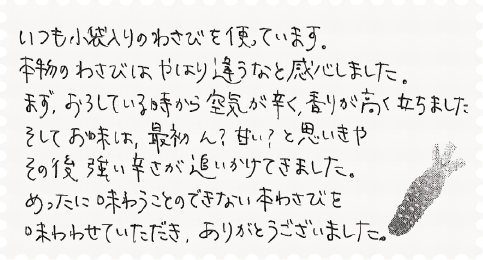 いつも小袋入りのわさびを使っています。
本物のわさびは やはり違うなと感心しました。
まず、おろしている時から空気が辛く、香りが高く立ちました
そしてお味は、最初 ん？甘い？と思いきや
その後 強い辛さが追いかけてきました。
めったに味わうことのできない本わさびを
味わわせていただき、ありがとうございました。